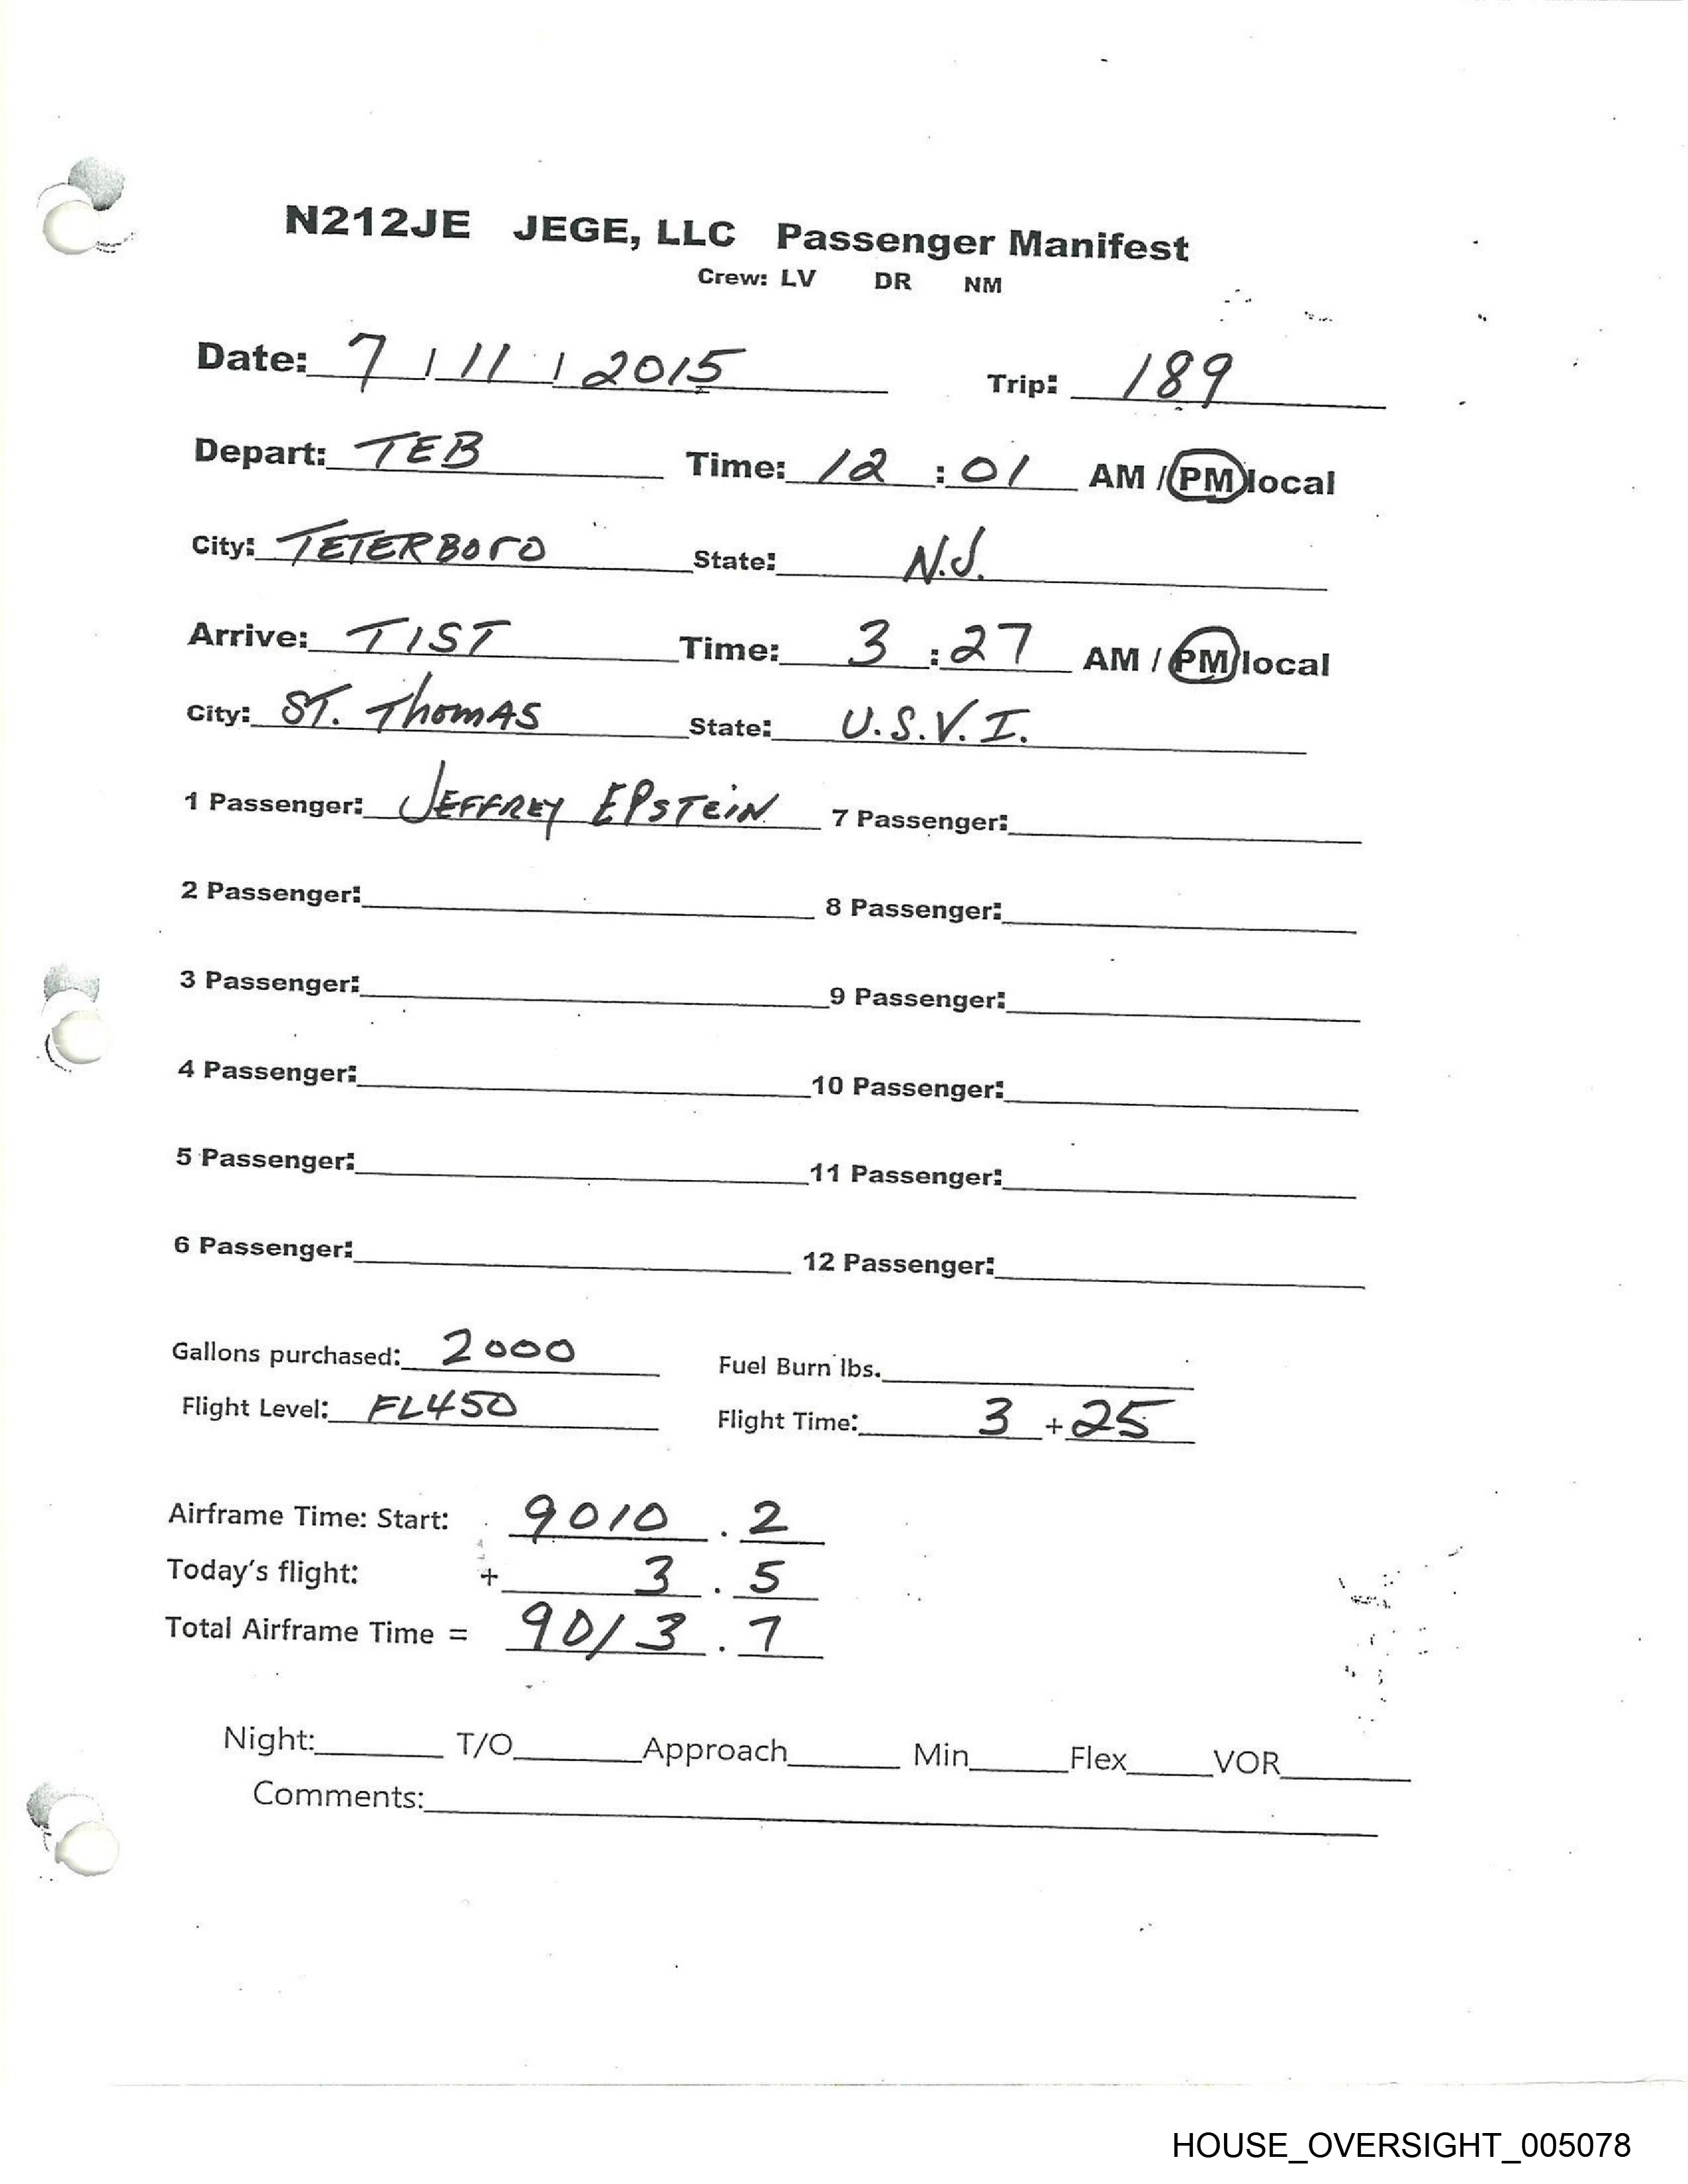 N212JE JEGE, LLC Passenger Manifest
Crew: LV DR NM
Date: 7 / 11 / 2015 Trip: 189
Depart: TEB Time: 12 : 01 AM / PM local
City: TETERBORO State: N.J.
Arrive: TIST Time: 3 : 27 AM / PM local
City: ST. THOMAS State: U.S.V.I.
1 Passenger: JEFFREY EPSTEIN 7 Passenger:
2 Passenger: 8 Passenger:
3 Passenger: 9 Passenger:
4 Passenger: 10 Passenger:
5 Passenger: 11 Passenger:
6 Passenger: 12 Passenger:
Gallons purchased: 2000 Fuel Burn lbs.
Flight Level: FL450 Flight Time: 3 + 25
Airframe Time: Start: 9010 . 2
Today's flight: + 3 . 5
Total Airframe Time = 9013 . 7
Night: T/O Approach Min Flex VOR
Comments:
HOUSE_OVERSIGHT_005078